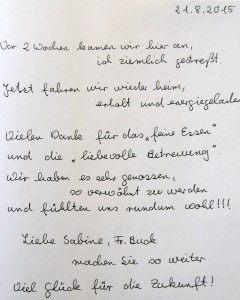 21.8.2015
Vor 2 Wochen kamen wir hier an,
ich ziemlich gestreßt.
Jetzt fahren wir wieder heim,
erholt und energiegeladen
Vielen Dank für das „feine Essen"
und die „liebevolle Betreuung".
Wir haben es sehr genossen,
so verwöhnt zu werden
und fühlten uns rundum wohl!!!
Liebe Sabine, Fr. Buck
machen Sie so weiter
Viel Glück für die Zukunft!